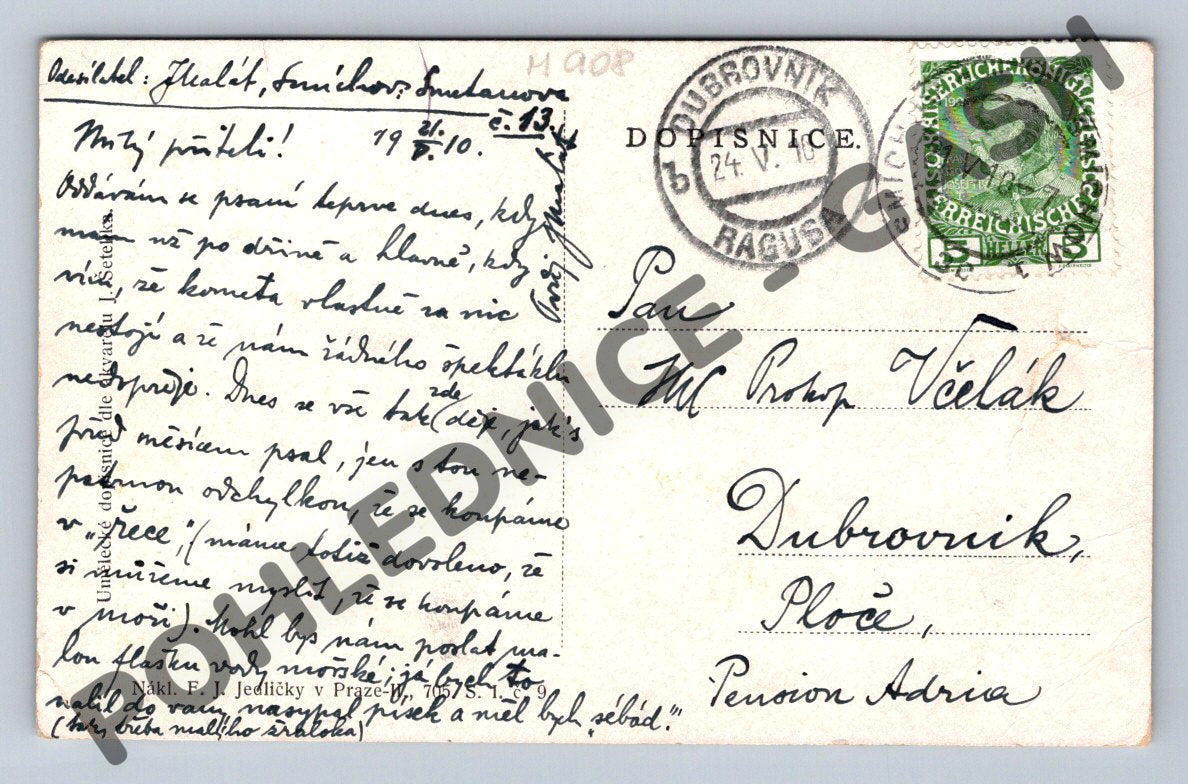 M 908
Odesílatel: J. Malát, Smíchov, Smetanova
č. 13.
19 21./V. 10.
Milý příteli!
Oddávám se psaní teprve dnes, kdy
mám už po dřině a hlavně, kdy
vím, že kometa vlastně za nic
nestojí a že nám žádného špektáklu
nedopřeje. Dnes se vše tak zde děje, jak's
před měsícem psal, jen s tou ne-
patrnou odchylkou, že se koupáme
v „řece", (máme totiž dovoleno, že
si můžeme myslit, že se koupáme
v moři). Mohl bys nám poslat ma-
lou flašku vody mořské; já bych to
nalil do vany, nasypal písek a měl bych „sebád".
(taky třeba malýho žraloka)
Tvůj
Umělecké dopisnice dle akvarelu J. Šetelíka.
Nákl. F. J. Jedličky v Praze-II., 705/S. I. č. 9
DOPISNICE.
DUBROVNIK
24. V. 10
b
RAGUSA
SMÍCHOV
5 HELLER 5
Pan
Prokop Včelák
Dubrovnik,
Ploče,
Pension Adria
POHLEDNICE - G SH